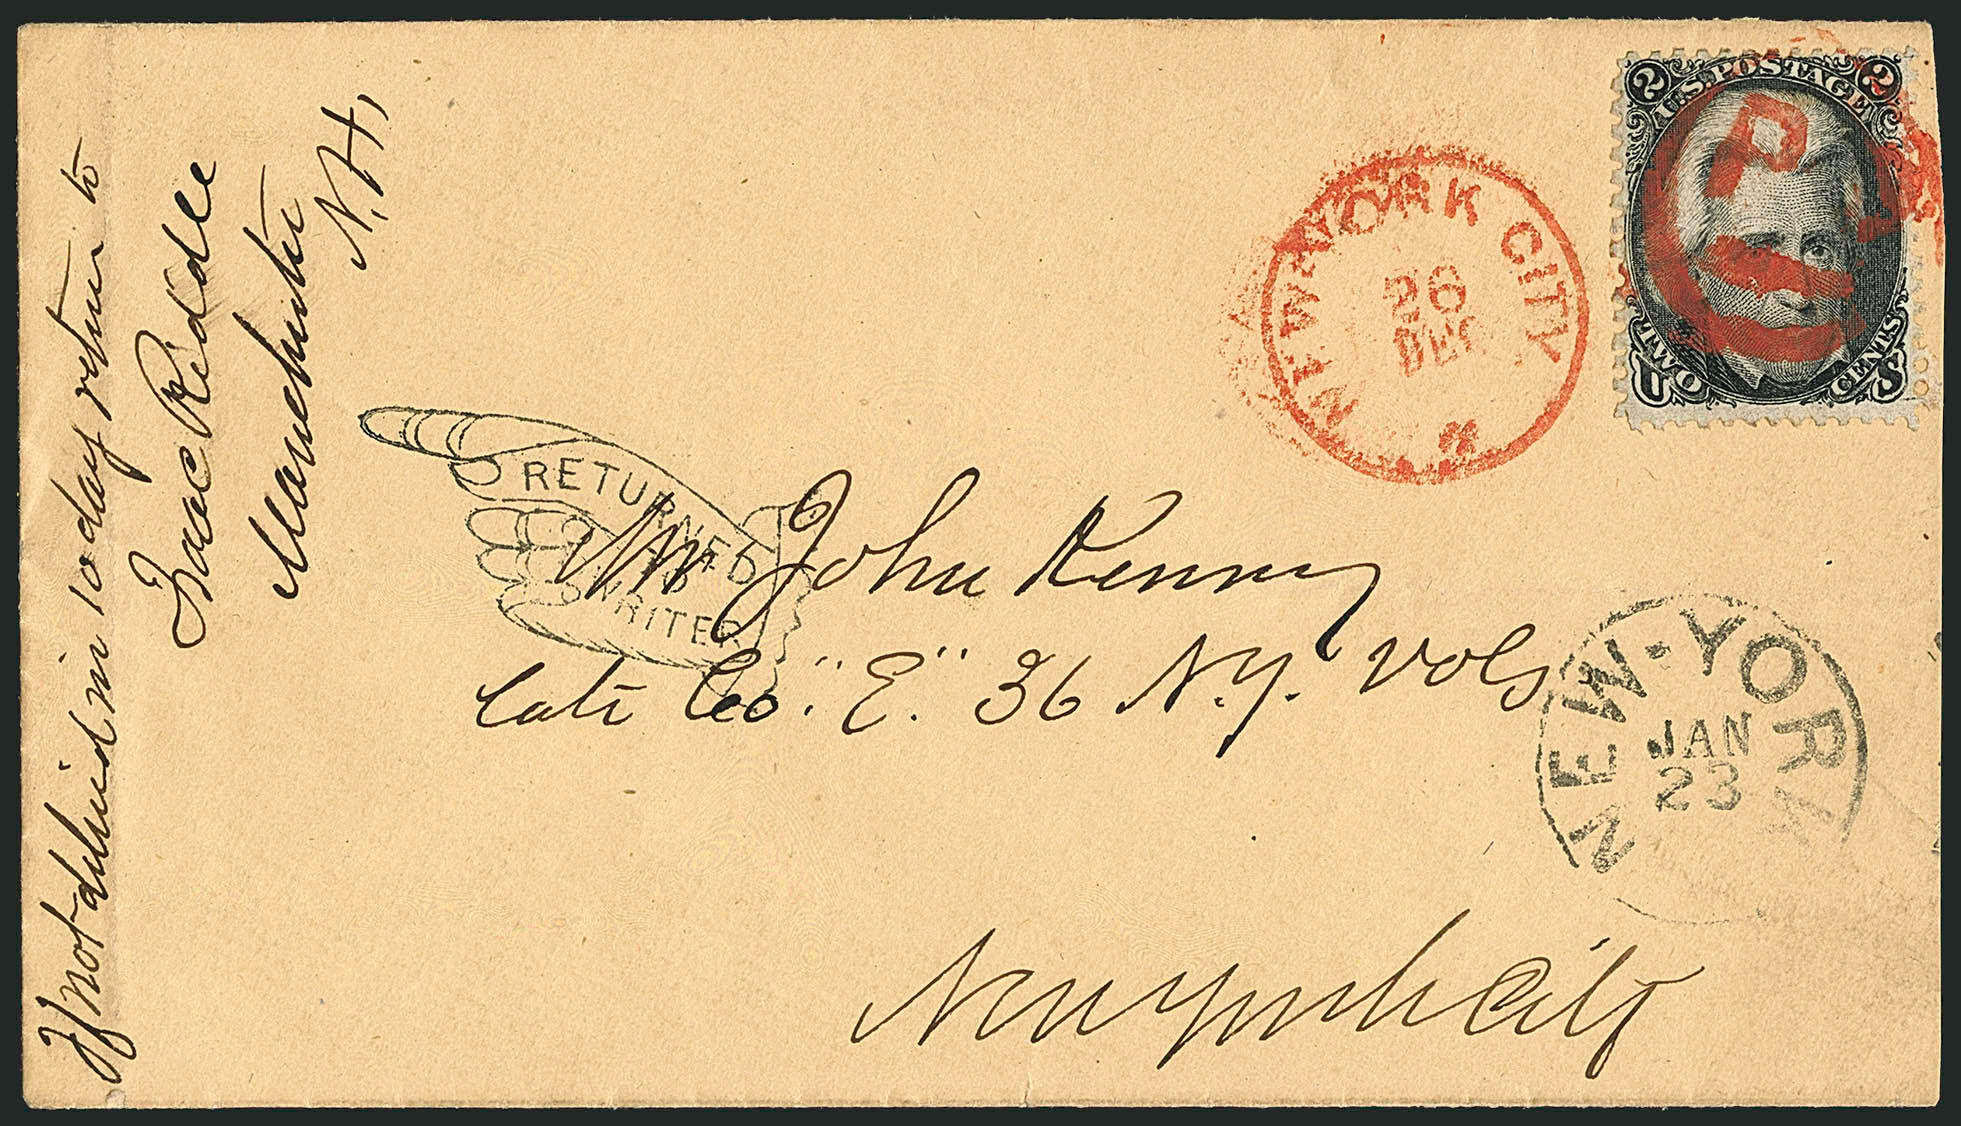 If not delivered in 10 days return to
Isaac Riddle
Manchester
N.H.
NEW YORK CITY
26
DEC
U.S. POSTAGE
2 2
TWO CENTS
U S
P
RETURNED
TO
WRITER
Mr John Kenny
late Co. "E." 36 N.Y. Vols.
New York City
NEW-YORK
JAN
23